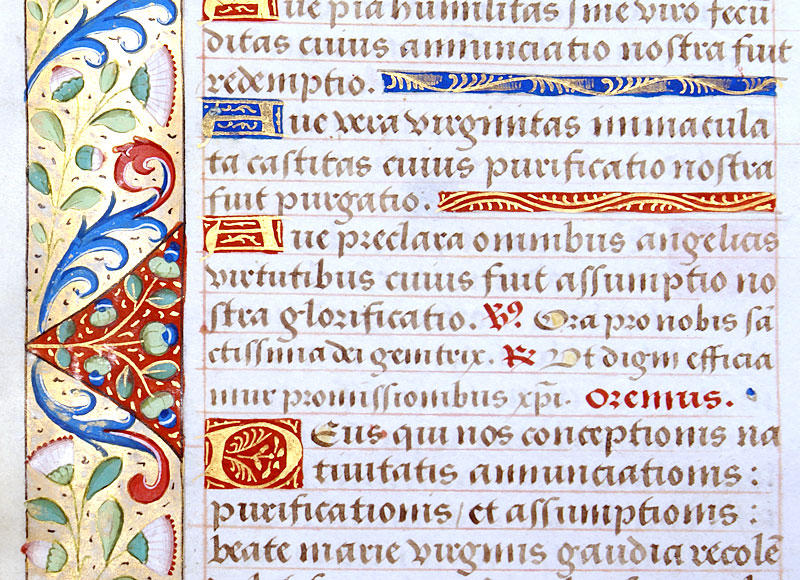 Aue pia humilitas sine viro fecū
ditas cuius annunciatio nostra fuit
redemptio.
Aue vera virginitas immacula
ta castitas cuius purificatio nostra
fuit purgatio.
Aue preclara omnibus angelicis
virtutibus cuius fuit assumptio no
stra glorificatio. ꝟ9 Ora pro nobis sā
ctissima dei genitrix. ℞ Ut digni efficia
mur promissionibus xp̄i. Oremus.
Deus qui nos conceptionis na
tiuitatis annunciationis:
purificationis/ et assumptionis:
beate marie virginis gaudia recolē